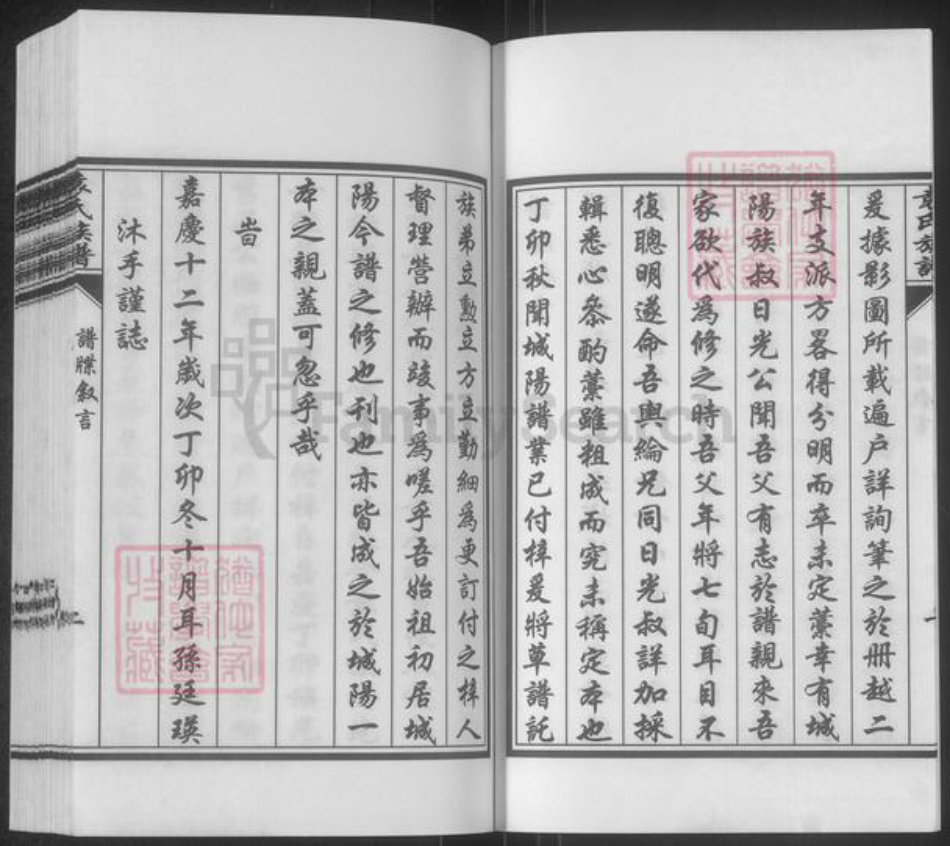 爰據影圖所載遍户詳詢筆之於册越二
年支派方畧得分明而卒未定藁幸有城
陽族叔日光公聞吾父有志於譜親來吾
家欲代爲修之時吾父年將七旬耳目不
復聰明遂命吾與綸兄同日光叔詳加採
輯悉心叅酌藁雖粗成而究未稱定本也
丁卯秋聞城陽譜業已付梓爰將草譜託
族弟立勲立方立勤細爲更訂付之梓人
督理營辦而竣事爲嗟乎吾始祖初居城
陽今譜之修也刊也亦皆成之於城陽一
本之親蓋可忽乎哉
旹
嘉慶十二年嵗次丁卯冬十月耳孫廷瑛
沐手謹誌
氏族譜
譜牒叙言
二
FamilySearch